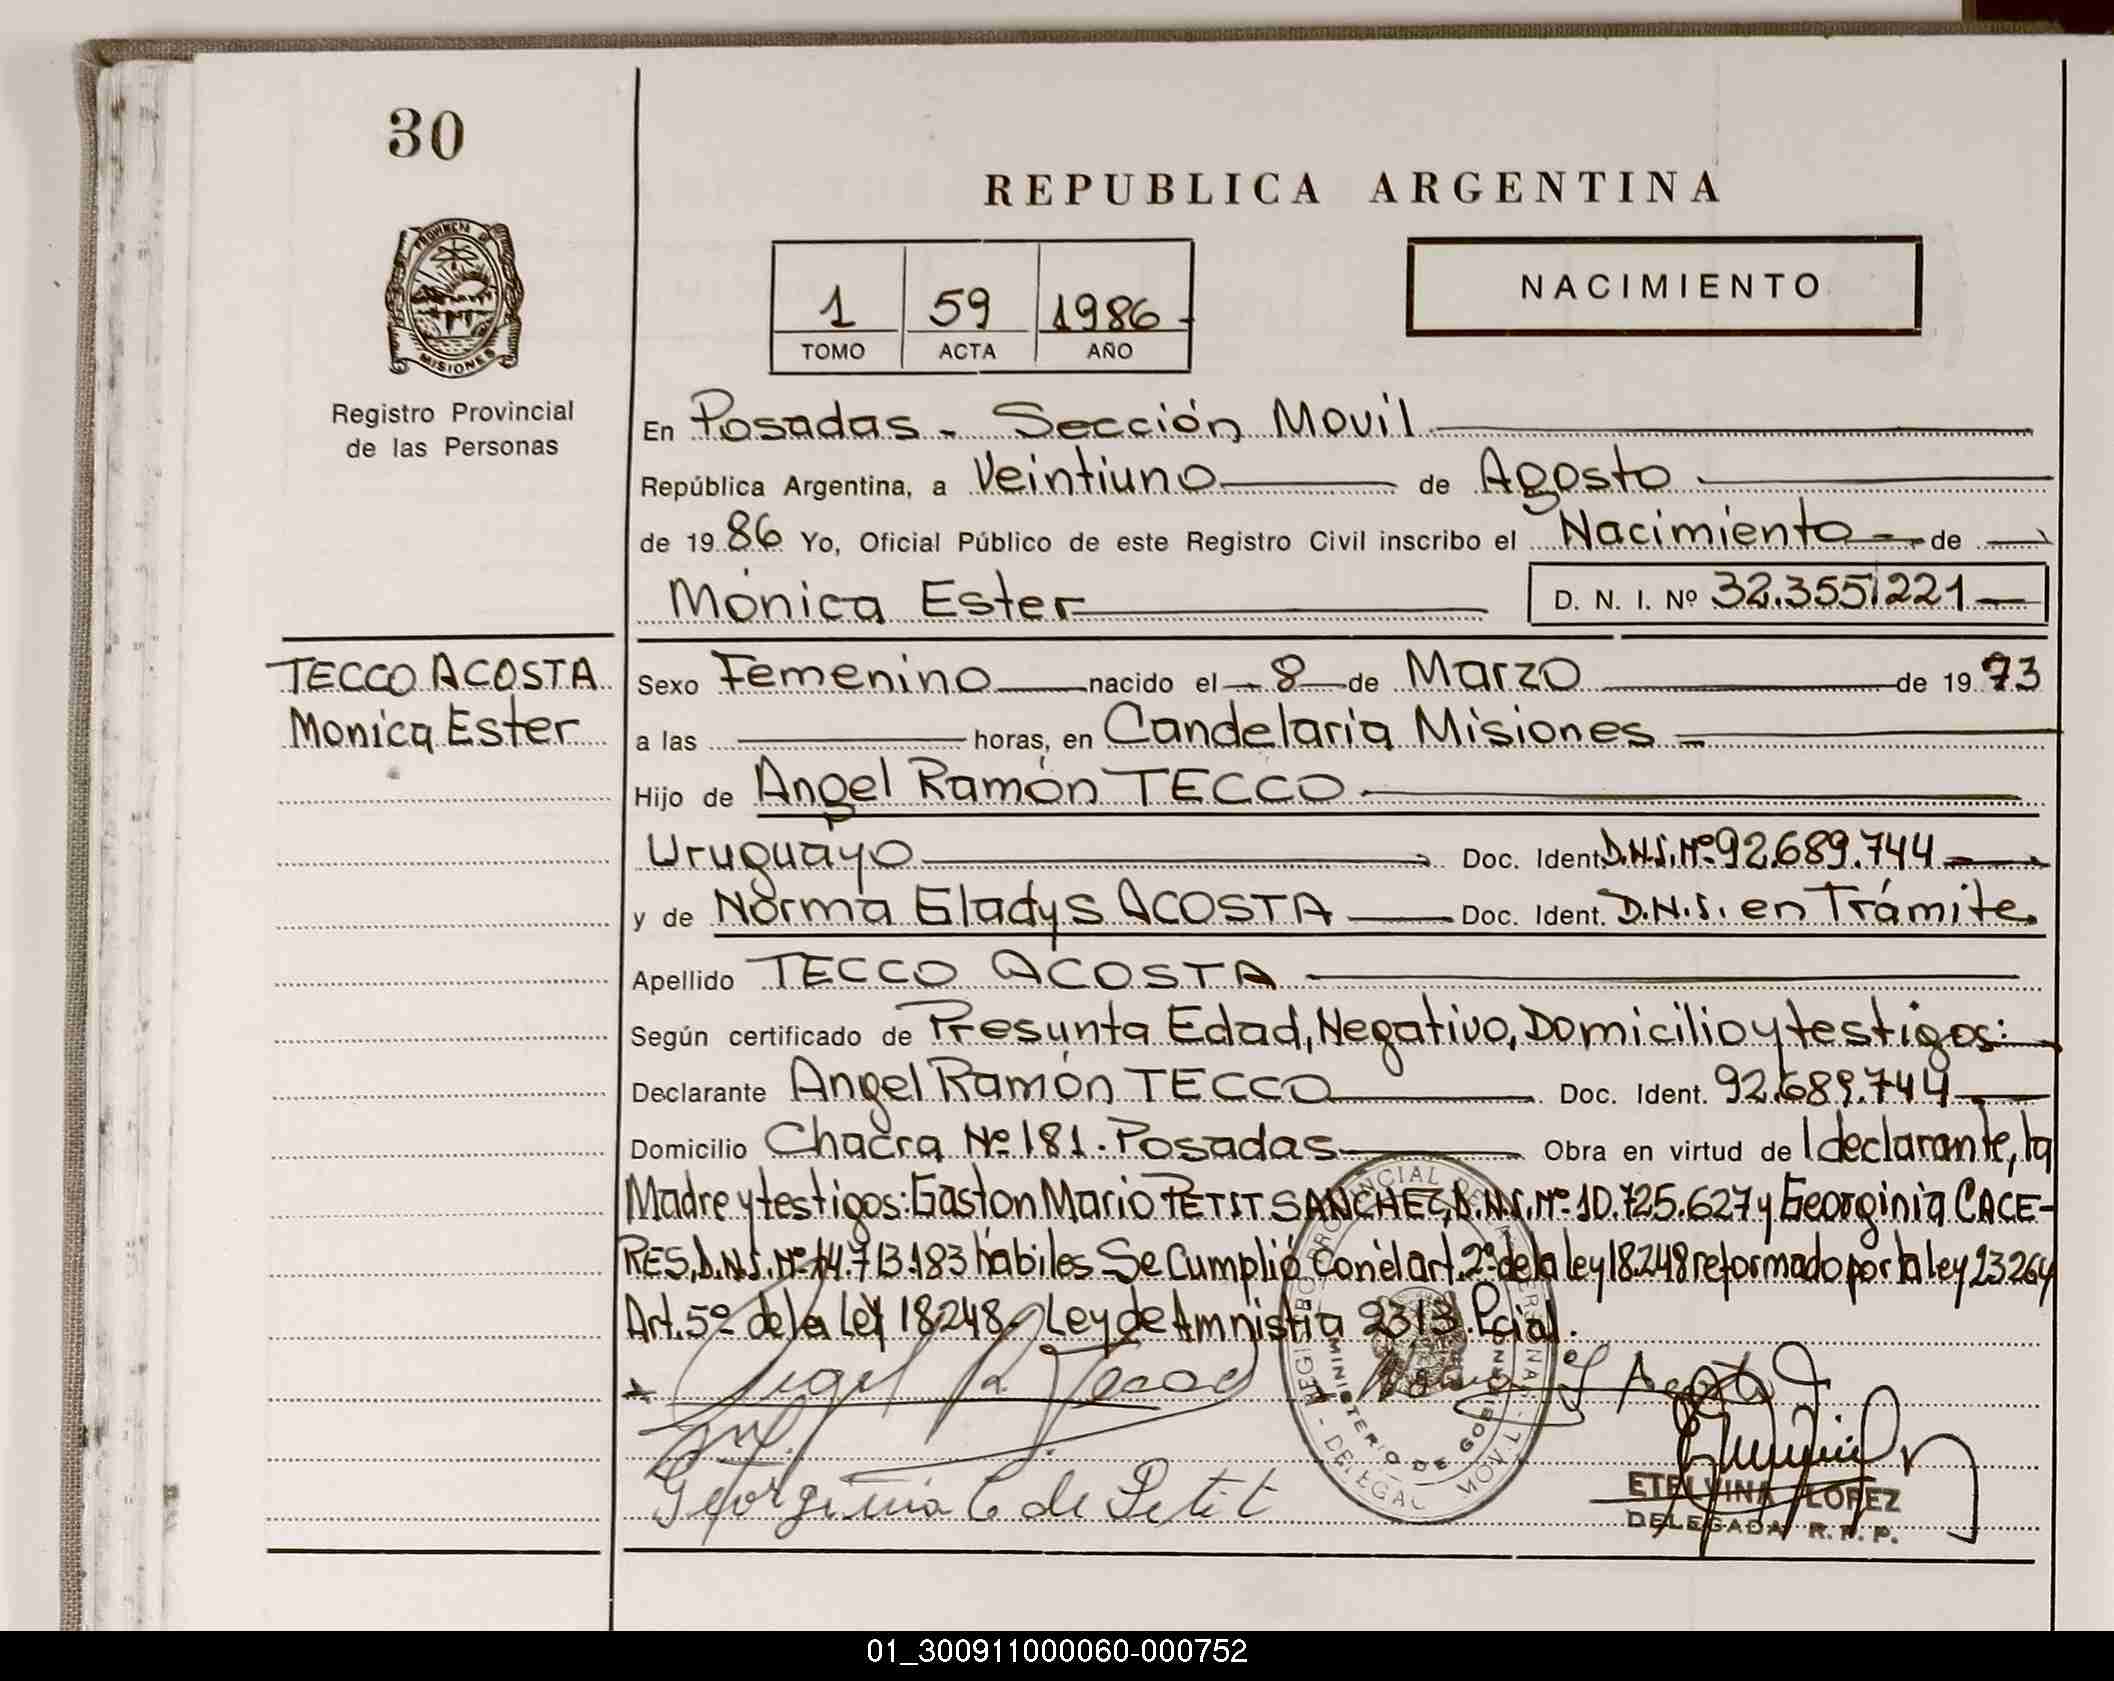 30
REPUBLICA ARGENTINA
PROVINCIA DE
MISIONES
1 59 1986
TOMO ACTA AÑO
NACIMIENTO
Registro Provincial
de las Personas
En Posadas - Sección Movil
República Argentina, a Veintiuno de Agosto
de 1986 Yo, Oficial Público de este Registro Civil inscribo el Nacimiento de
Mónica Ester D. N. I. Nº 32.355.221
TECCO ACOSTA
Monica Ester
Sexo Femenino nacido el 8 de Marzo de 1973
a las horas, en Candelaria Misiones
Hijo de Angel Ramón TECCO
Uruguayo Doc. Ident. D.N.I. Nº 92.689.744
y de Norma Gladys ACOSTA Doc. Ident. D.N.I. en Trámite.
Apellido TECCO ACOSTA
Según certificado de Presunta Edad, Negativo, Domicilio y testigos:
Declarante Angel Ramón TECCO Doc. Ident. 92.689.744
Domicilio Chacra Nº 181. Posadas Obra en virtud de l declarante, la
Madre y testigos: Gaston Mario PETIT SANCHEZ, D.N.I. Nº 10.725.627 y Georginia CACE-
RES, D.N.I. Nº 14.713.183 hábiles Se Cumplió con él art. 2º de la ley 18.248 reformado por la ley 23264
Art. 5º de la Ley 18248. Ley de Amnistia 2313. Pcial.
Angel R. Tecco
Norma G Acosta
Georginia C de Petit
MINISTERIO DE GOBIERNO
ETELVINA LOPEZ
DELEGADA R. P. P.
01_300911000060-000752